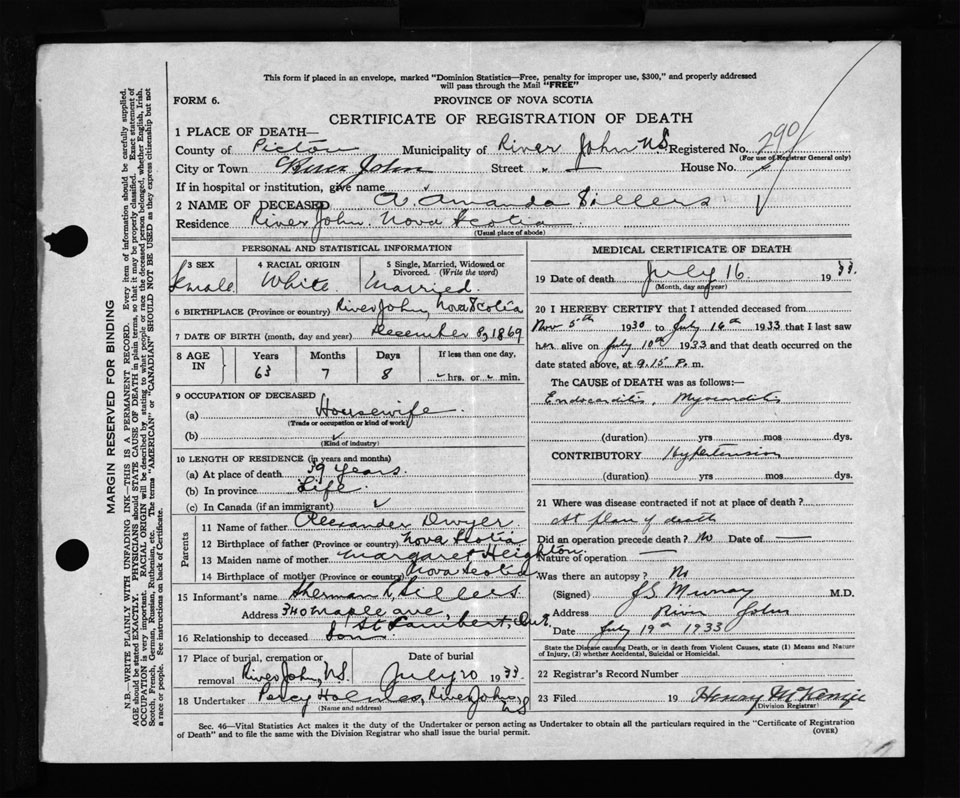 This form if placed in an envelope, marked "Dominion Statistics—Free, penalty for improper use, $300," and properly addressed
will pass through the Mail "FREE"
FORM 6.
PROVINCE OF NOVA SCOTIA
CERTIFICATE OF REGISTRATION OF DEATH
1 PLACE OF DEATH—
County of Pictou Municipality of River John N.S. Registered No. 290
(For use of Registrar General only)
City or Town River John Street " House No.
If in hospital or institution, give name
2 NAME OF DECEASED A. Amanda Sillers
Residence River John. Nova Scotia
(Usual place of abode)
PERSONAL AND STATISTICAL INFORMATION
3 SEX
Female
4 RACIAL ORIGIN
White
5 Single, Married, Widowed or
Divorced. (Write the word)
Married.
6 BIRTHPLACE (Province or country) River John, Nova Scotia
7 DATE OF BIRTH (month, day and year) December 8, 1869
8 AGE
IN
Years
63
Months
7
Days
8
If less than one day,
hrs. or min.
9 OCCUPATION OF DECEASED
(a) Housewife
(Trade or occupation or kind of work)
(b)
(Kind of industry)
10 LENGTH OF RESIDENCE (in years and months)
(a) At place of death 39 years.
(b) In province Life
(c) In Canada (if an immigrant)
Parents
11 Name of father Alexander Dwyer
12 Birthplace of father (Province or country) Nova Scotia
13 Maiden name of mother Margaret Heighton
14 Birthplace of mother (Province or country) Nova Scotia
15 Informant's name Sherman K. Sillers
Address 340 Maple ave,
St Lambert,
16 Relationship to deceased Son
17 Place of burial, cremation or
removal River John, N.S.
Date of burial
July 20 1933
18 Undertaker Percy Holmes, River John
N S
(Name and address)
MEDICAL CERTIFICATE OF DEATH
19 Date of death July 16 1933.
(Month, day and year)
20 I HEREBY CERTIFY that I attended deceased from
Nov 5th 1930 to July 16th 1933 that I last saw
her alive on July 10th 1933 and that death occurred on the
date stated above, at 9.15 P. m.
The CAUSE of DEATH was as follows:—
Endocarditis, Myocarditis
(duration) yrs mos dys.
CONTRIBUTORY Hypertension
(duration) yrs mos dys.
21 Where was disease contracted if not at place of death?
At place of death
Did an operation precede death? No Date of —
Nature of operation —
Was there an autopsy? No
(Signed) J.S. Murray M.D.
Address River John
Date July 19th 1933
State the Disease causing Death, or in death from Violent Causes, state (1) Means and Nature
of Injury, (2) whether Accidental, Suicidal or Homicidal.
22 Registrar's Record Number
23 Filed 19 Henry McKenzie
(Division Registrar)
Sec. 46—Vital Statistics Act makes it the duty of the Undertaker or person acting as Undertaker to obtain all the particulars required in the "Certificate of Registration
of Death" and to file the same with the Division Registrar who shall issue the burial permit.
(OVER)
MARGIN RESERVED FOR BINDING
N.B.—WRITE PLAINLY WITH UNFADING INK—THIS IS A PERMANENT RECORD. Every item of information should be carefully supplied.
AGE should be stated EXACTLY. PHYSICIANS should STATE CAUSE OF DEATH in plain terms, so that it may be properly classified. Exact statement of
OCCUPATION is very important. RACIAL ORIGIN will be described by stating to what people or race the deceased person belonged, whether English, Irish,
Scotch, French, German, Russian, Ruthenian, etc. The terms "AMERICAN" or "CANADIAN" SHOULD NOT BE USED as they express citizenship but not
a race or people. See instructions on back of Certificate.